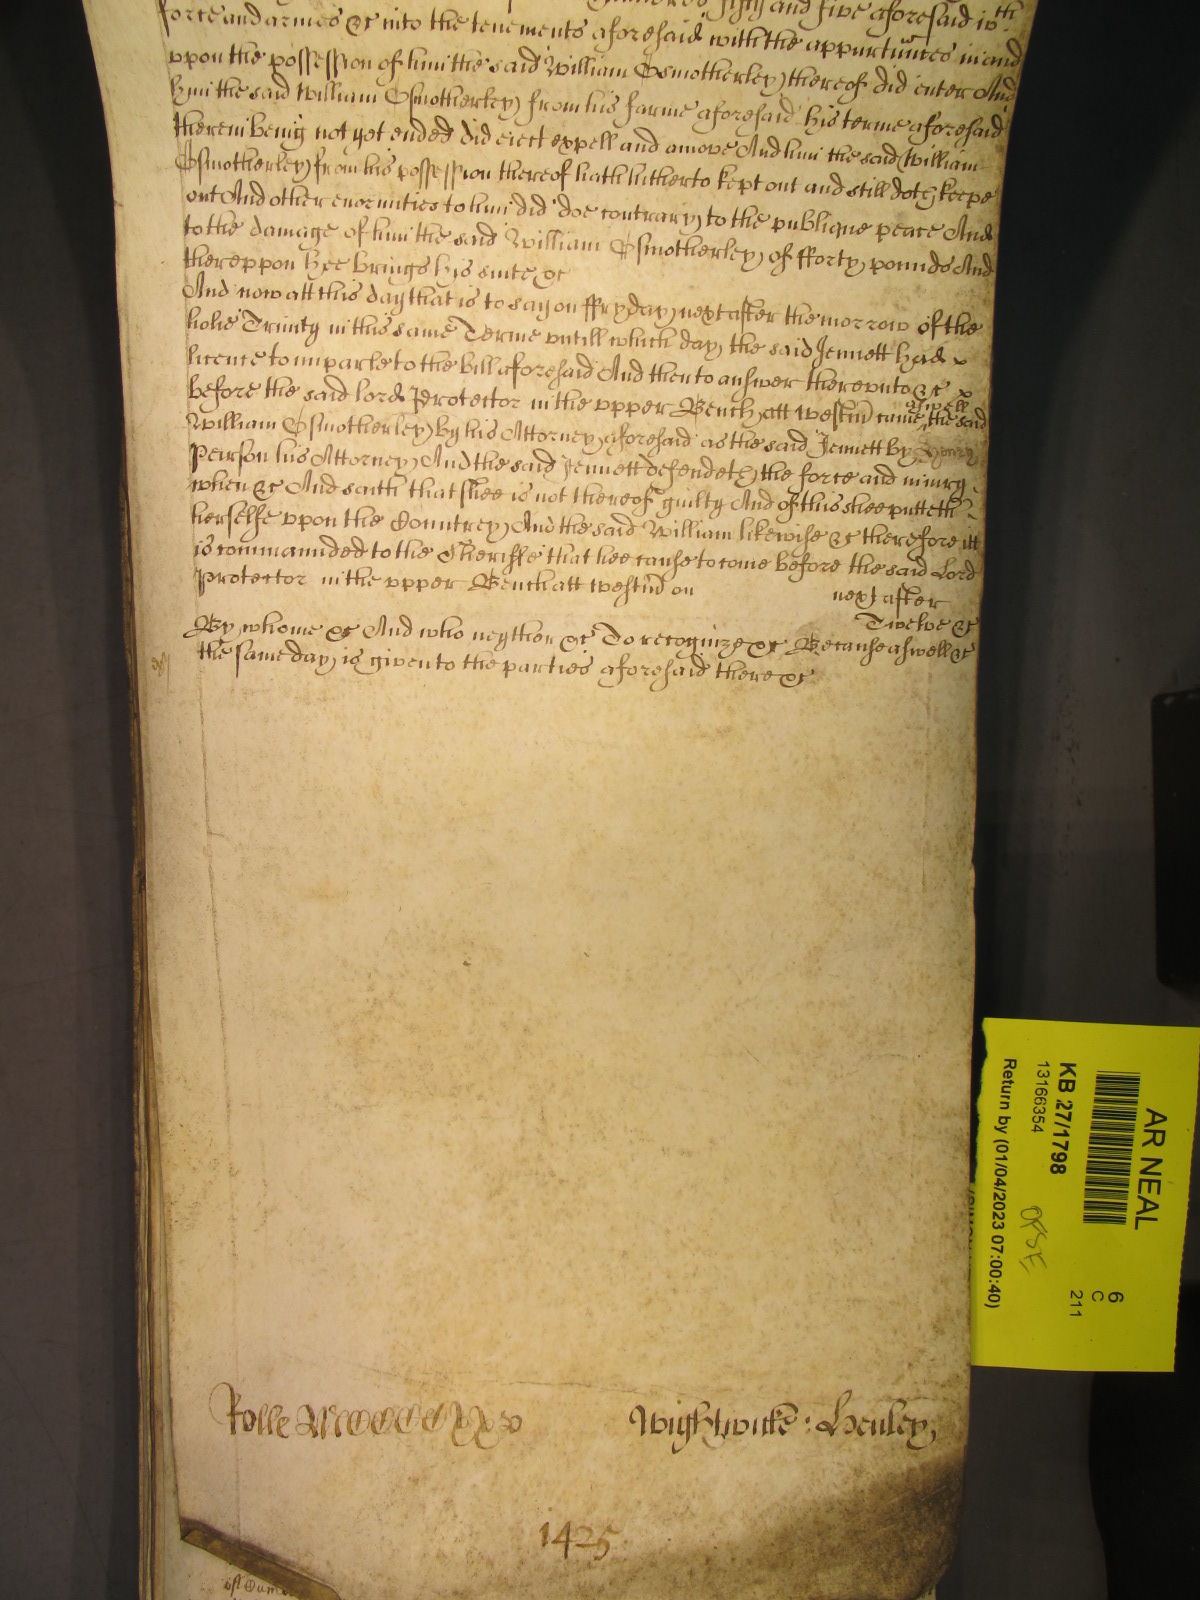 hundred fifty and five aforesaid wth
force and armes &c into the tenements aforesaid with the appurtunces in and
vppon the possession of him the said William Osmotherley thereof did enter And
him the said William Osmotherley from his farme aforesaid his terme aforesaid
therein being not yet ended did eiect expell and amove And him the said William
Osmotherley from his possession thereof hath hitherto kept out and still doth keepe
out And other enormities to him did doe contrary to the publique peace And
to the damage of him the said William Osmotherley of fforty pounds And
thereppon hee brings his suite &c
And now att this day that is to say on ffryday next after the morrow of the
holie Trinity in this same Terme vntill which day the said Jennett had x
licence to imparle to the bill aforesaid And then to answer therevnto &c x
before the said lord Protector in the vpper Bench att Westm came aswell the said
William Osmotherley by his Attorney aforesaid as the said Jennett by Henry
Peirson his Attorney And the said Jennett defendeth the force and iniury
when &c And saith that shee is not thereof guilty And of this shee putteth
herselfe vpon the Countrey And the said William likewise &c therefore itt
is commannded to the Sheriffe that hee cause to come before the said Lord
Protector in the vpper Bench att Westm on next after
Twelve &c
By whome &c And who neyther &c To recognize &c Because aswell &c
the same day is given to the parties aforesaid there &c
Rolle MCCCCXXV
Wightwicke : Henley
1425
AR NEAL
KB 27/1798
13166354
Return by (01/04/2023 07:00:40)
6
C
211